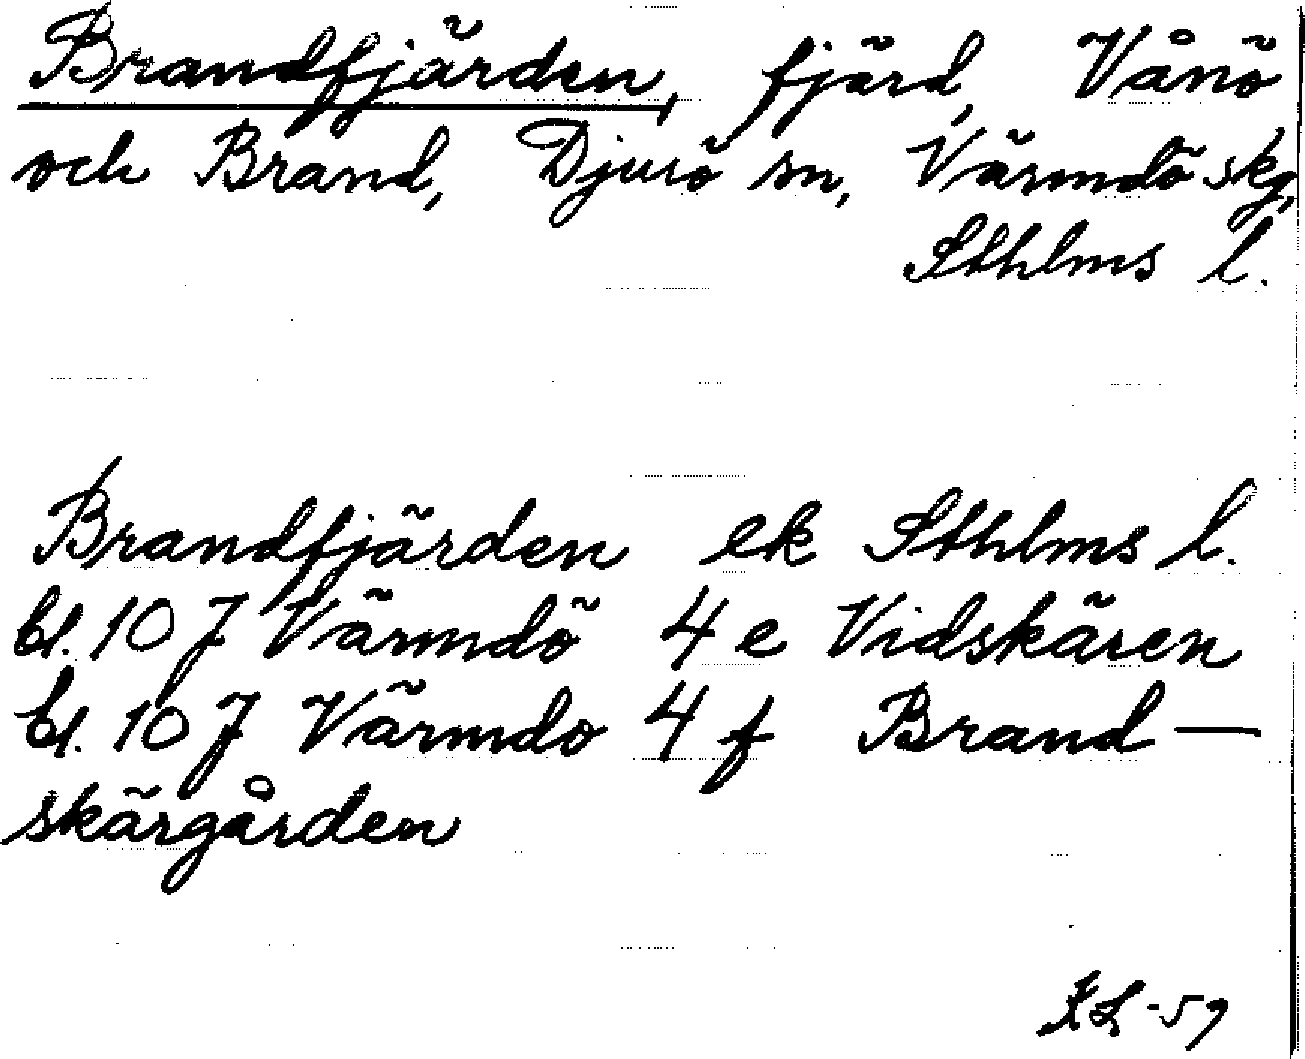 Brandfjärden, fjärd, Vånö
och Brand, Djurö sn, Värmdö skg,
Sthlms l.
Brandfjärden ek Sthlms l.
bl. 107 Värmdö 4 e Vidskären
bl. 107 Värmdö 4 f Brand—
skärgården
-59